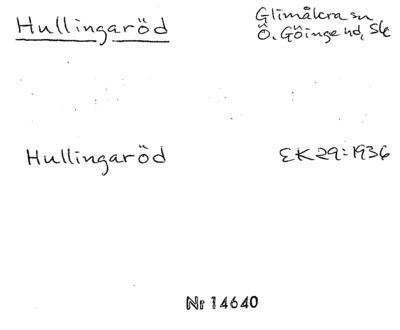 Hullingaröd
Glimåkra sn
Ö. Göinge hd, Sk
Hullingaröd
EK 29:1936
Nr 14640